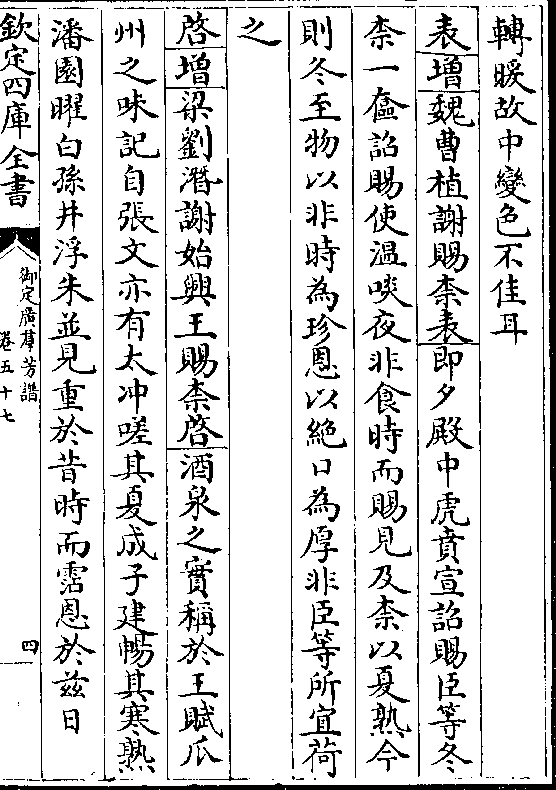 轉暖故中變色不佳耳
表增魏曹植謝賜柰表即夕殿中虎賁宣詔賜臣等冬
柰一奩詔賜使溫啖夜非食時而賜見及柰以夏熟今
則冬至物以非時為珍恩以絕口為厚非臣等所宜荷
之
啓增梁劉潛謝始興王賜柰啓酒泉之實稱於王賦瓜
州之味記自張文亦有太冲嗟其夏成子建暢其寒熟
潘園曜白孫井浮朱並見重於昔時而霑恩於兹日
欽定四庫全書
御定廣羣芳譜
卷五十七
四